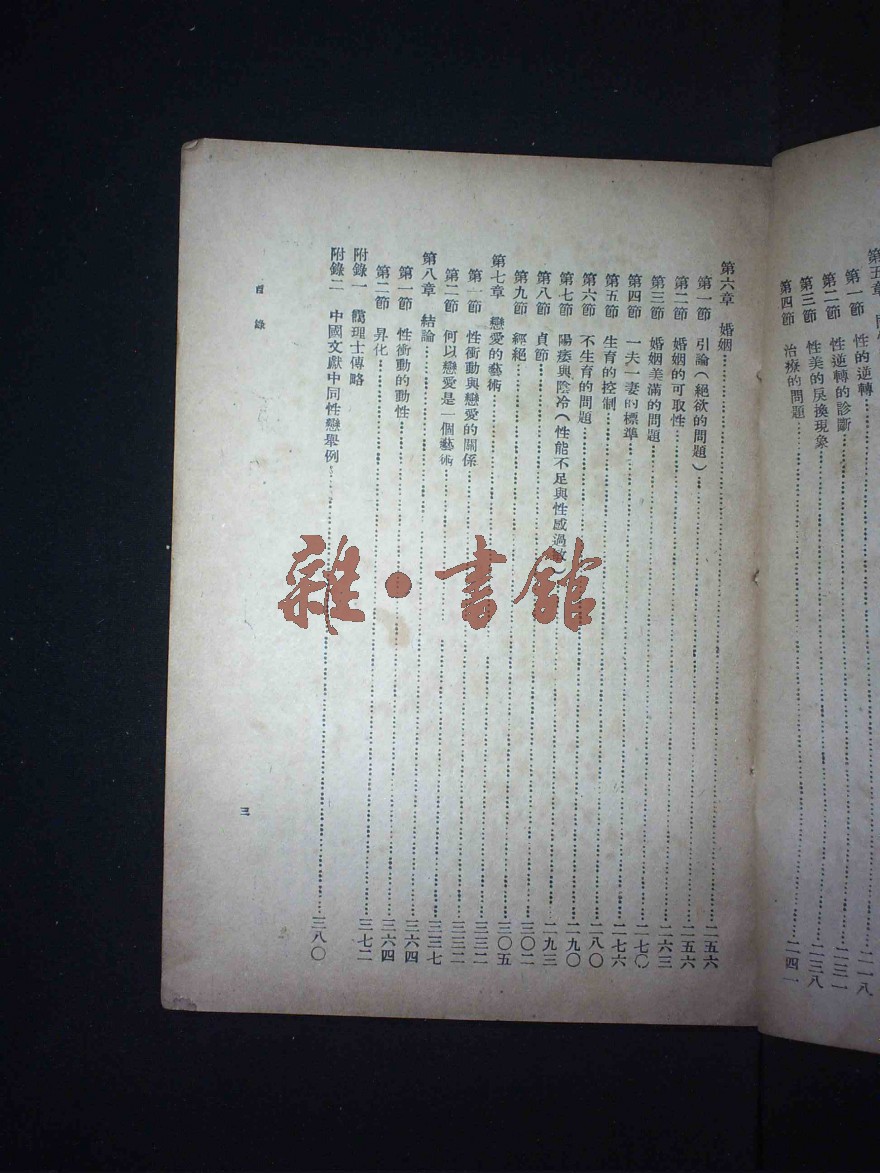 第一節 性的逆轉……二一八
第二節 性逆轉的診斷……二三一
第三節 性美的戾換現象……二三八
第四節 治療的問題……二四一
第六章 婚姻……二五六
第一節 引論(絕欲的問題)……二五六
第二節 婚姻的可取性……二六三
第三節 婚姻美滿的問題……二七〇
第四節 一夫一妻的標準……二七六
第五節 生育的控制……二八〇
第六節 不生育的問題……二九〇
第七節 陽痿與陰冷(性能不足與性感過敏)……二九三
第八節 貞節……三〇二
第九節 經絕……三〇五
第七章 戀愛的藝術……三三二
第一節 性衝動與戀愛的關係……三三二
第二節 何以戀愛是一個藝術……三三七
第八章 結論……三六四
第一節 性衝動的動性……三六四
第二節 昇化……三七二
附錄一 靄理士傳略
附錄二 中國文獻中同性戀舉例……三八〇
目錄
三
雜·書館